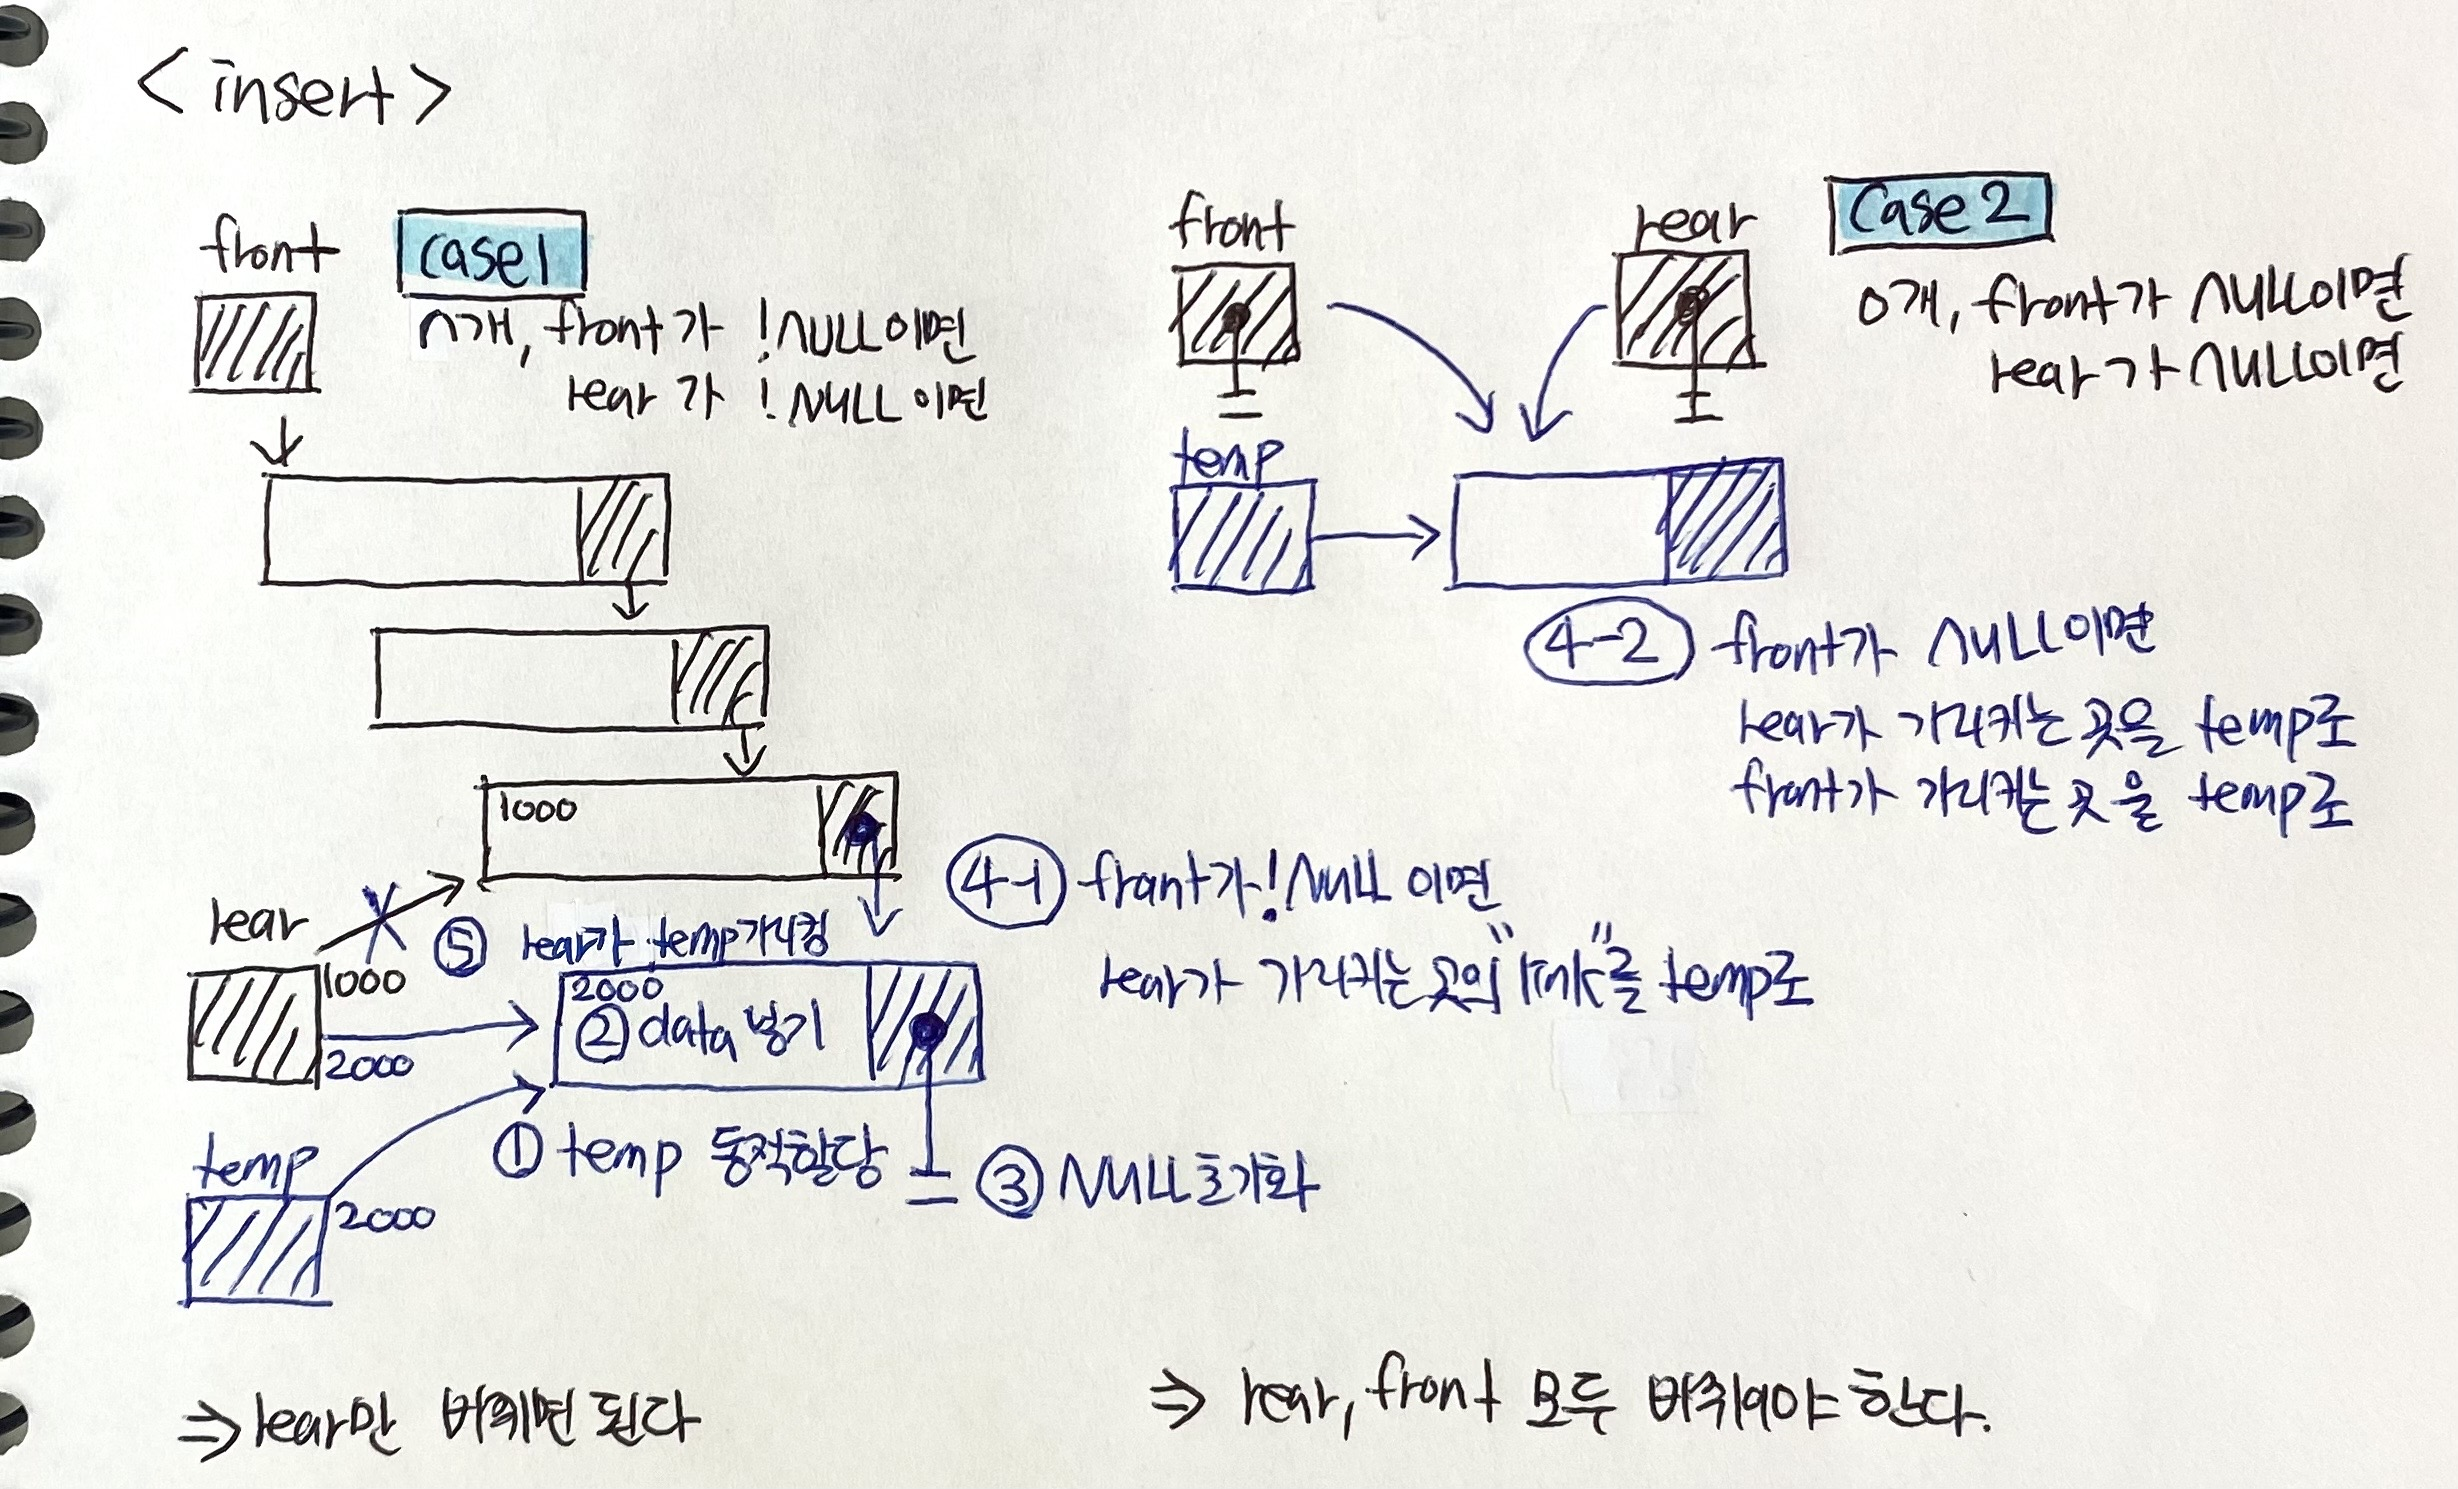 <insert>
front
case1
n개, front가 !NULL이면
rear가 !NULL이면
1000
rear
1000
2000
⑤ rear가 temp가리킴
2000
② data 넣기
① temp 동적할당
③ NULL초기화
temp
2000
④-1 front가 !NULL이면
rear가 가리키는 곳의 "link"를 temp로
⇒ rear만 바뀌면 된다
front
rear
Case2
0개, front가 NULL이면
rear가 NULL이면
temp
④-2 front가 NULL이면
rear가 가리키는 곳을 temp로
front가 가리키는 곳을 temp로
⇒ rear, front 모두 바뀌어야 한다.